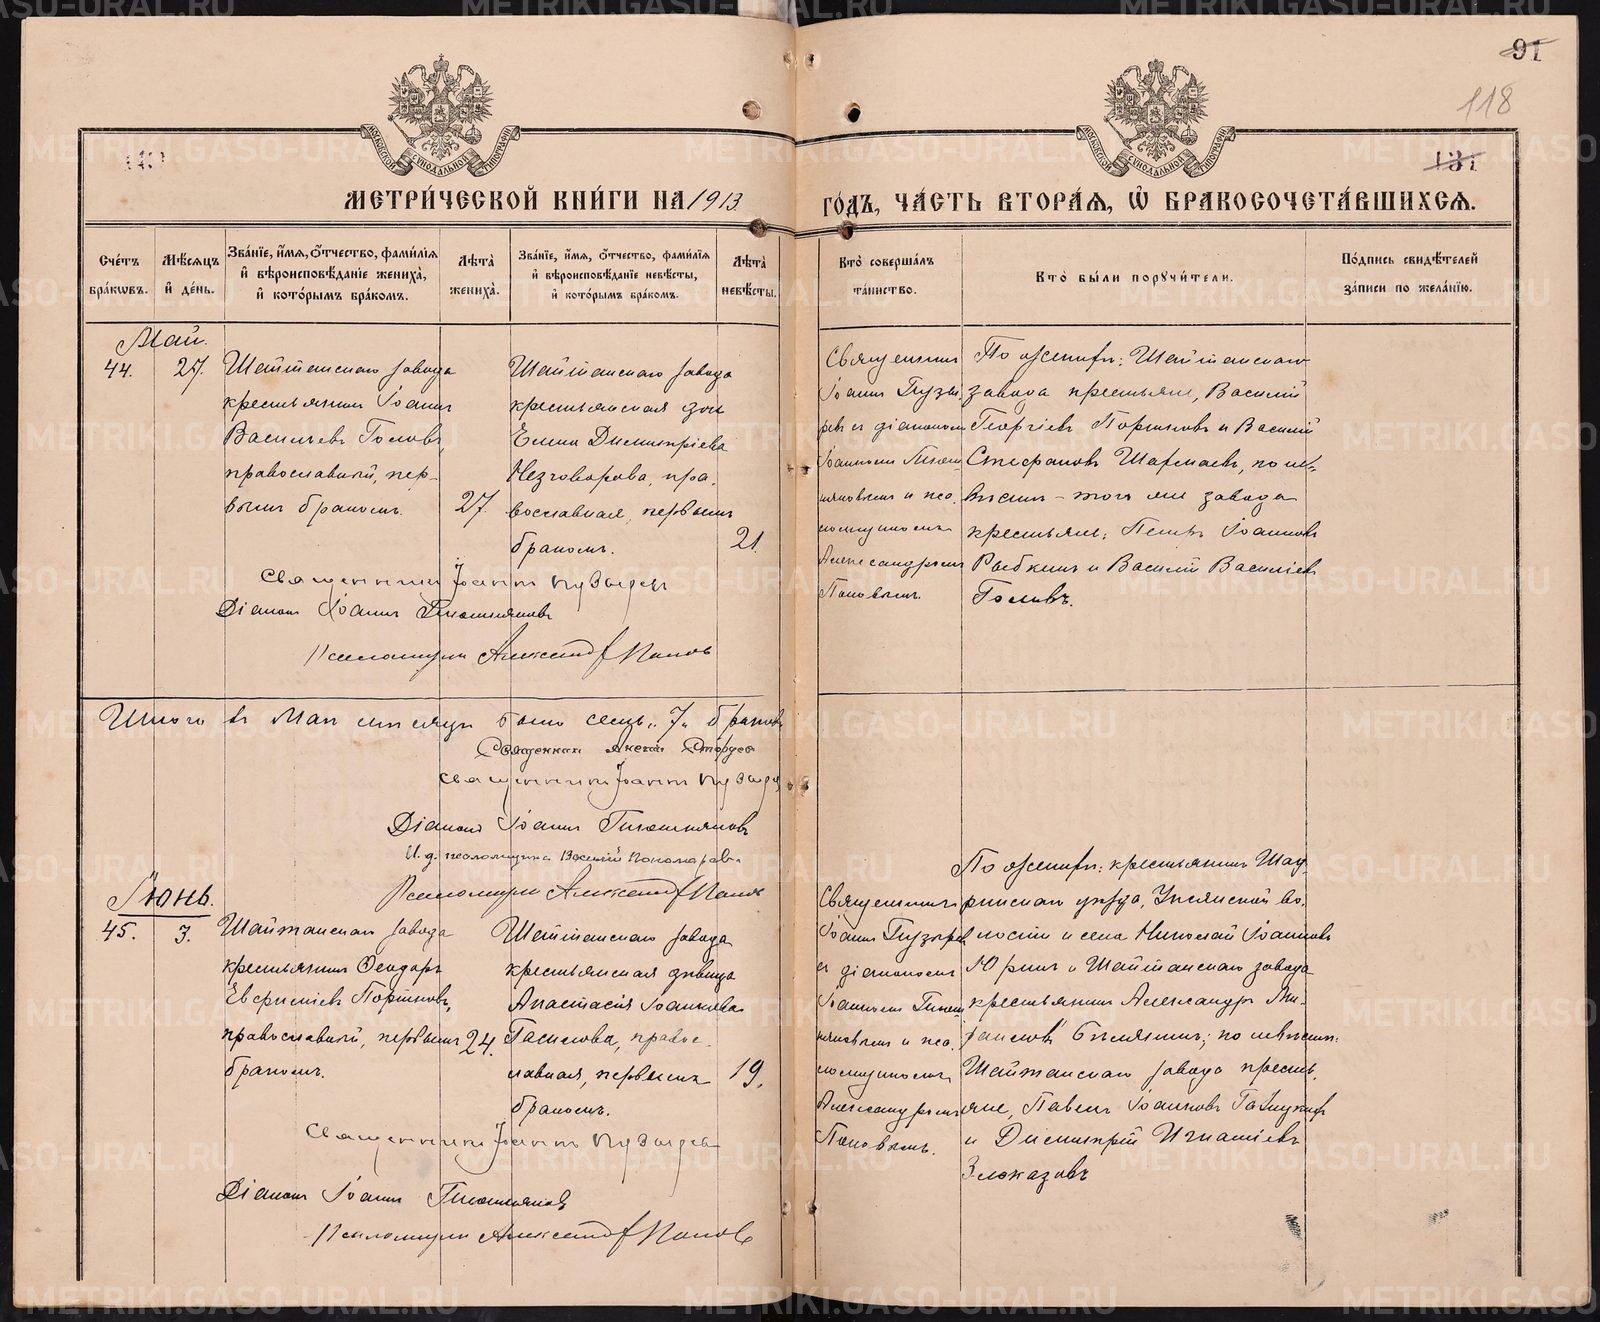 91
118
131
МЕТРИ́ЧЕСКОЙ КНИ́ГИ НА 1913
ГО́ДЪ, ЧА́СТЬ ВТОРА́Я, Ѡ҆ БРАКОСОЧЕТА́ВШИХСЯ.
Сче́тъ бра́кѡвъ.
Мѣ́сяцъ и҆ де́нь.
Зва́нїе, и҆́мя, ѻ҆́тчество, фами́лїя
и҆ вѣроисповѣ́данїе жениха̀,
и҆ кото́рымъ бра́комъ.
Лѣта̀ жениха̀.
Зва́нїе, и҆́мя, ѻ҆́тчество, фами́лїя
и҆ вѣроисповѣ́данїе невѣ́сты,
и҆ кото́рымъ бра́комъ.
Лѣта̀ невѣ́сты.
Кто̀ соверша́лъ та́инство.
Кто̀ бы́ли порꙋчи́тели.
По́дпись свидѣ́телей за́писи по жела́нїю.
Май.
44.
27.
Шайтанскаго завода
крестьянинъ Іоаннъ
Васильевъ Головъ,
православный, пер-
вымъ бракомъ.
27.
Шайтанскаго завода
крестьянская дочь
Елена Димитріева
Незговорова, пра-
вославная, первымъ
бракомъ.
21.
Священникъ
Іоаннъ Пузы-
ревъ съ діакономъ
Іоанномъ
и пса-
ломщикомъ
Александромъ
Поповымъ.
По женихѣ: Шайтанскаго
завода крестьяне, Василій
Георгіевъ и Василій
Стефановъ по не-
вѣстѣ - того же завода
крестьяне: Петръ Іоанновъ
Рябкинъ и Василій Васильевъ
Головъ.
Священникъ Іоаннъ Пузыревъ
Діаконъ Іоаннъ
Псаломщикъ Александръ Поповъ
Итого въ Маѣ мѣсяцѣ было семь „7“ браковъ
Священникъ
Священникъ Іоаннъ Пузыревъ
Діаконъ Іоаннъ
И. д. псаломщика Василій Пономаревъ
Псаломщикъ Александръ Поповъ
Іюнь.
45.
3.
Шайтанскаго завода
крестьянинъ Ѳеодоръ
Евфиміевъ
православный, первымъ
бракомъ.
24.
Шайтанскаго завода
крестьянская дѣвица
Анастасія Іоаннова
Гасилова, правос-
лавная, первымъ
бракомъ.
19.
Священникъ
Іоаннъ Пузыревъ
съ діакономъ
Іоанномъ
и пса-
ломщикомъ
Александромъ
Поповымъ.
По женихѣ: крестьянинъ Шад-
ринскаго уѣзда, во-
лости и села Николай Іоанновъ
Юринъ и Шайтанскаго завода
крестьянинъ Александръ Ми-
хаиловъ по невѣстѣ:
Шайтанскаго завода кресть-
яне, Павелъ Іоанновъ
и Димитрій Игнатіевъ
Злоказовъ
Священникъ Іоаннъ Пузыревъ
Діаконъ Іоаннъ
Псаломщикъ Александръ Поповъ
METRIKI.GASO-URAL.RU